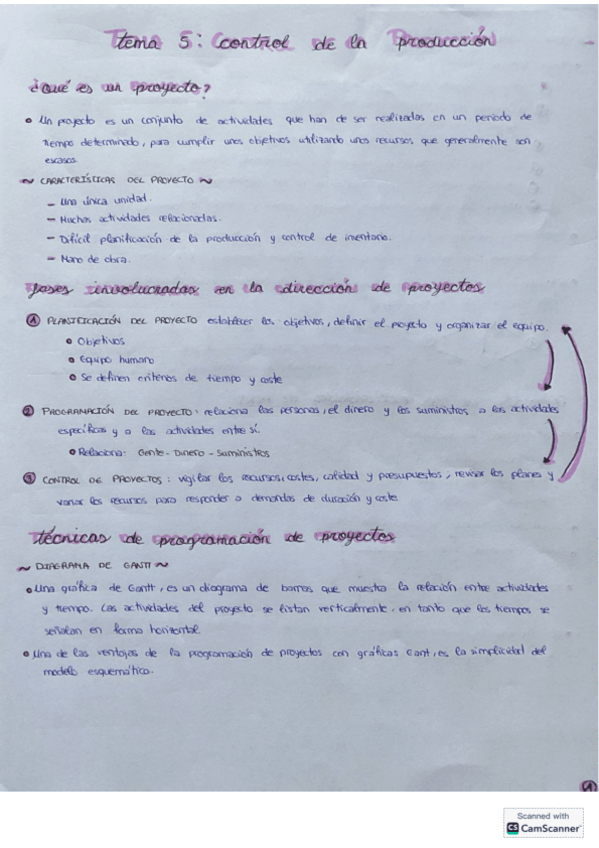 Tema 5: Control de la Producción
¿Qué es un proyecto?
Un proyecto es un conjunto de actividades que han de ser realizadas en un periodo de
tiempo determinado, para cumplir unos objetivos utilizando unos recursos que generalmente son
escasos.
~ CARACTERÍSTICAS DEL PROYECTO ~
- Una única unidad.
- Muchas actividades relacionadas.
- Difícil planificación de la producción y control de inventario.
- Mano de obra.
fases involucradas en la dirección de proyectos
1 PLANIFICACIÓN DEL PROYECTO establecer los objetivos, definir el proyecto y organizar el equipo.
Objetivos
Equipo humano
Se definen criterios de tiempo y coste
2 PROGRAMACIÓN DEL PROYECTO: relaciona las personas, el dinero y los suministros a las actividades
específicas y a las actividades entre sí.
Relaciona: Gente - Dinero - Suministros
3 CONTROL DE PROYECTOS: vigilar los recursos, costes, calidad y presupuestos; revisar los planes y
variar los recursos para responder a demandas de duración y coste
técnicas de programación de proyectos
~ DIAGRAMA DE GANTT ~
Una gráfica de Gantt, es un diagrama de barras que muestra la relación entre actividades
y tiempo. Las actividades del proyecto se listan verticalmente, en tanto que los tiempos se
señalan en forma horizontal.
Una de las ventajas de la programación de proyectos con gráficas Gant, es la simplicidad del
modelo esquemático.
1
Scanned with
CS CamScanner